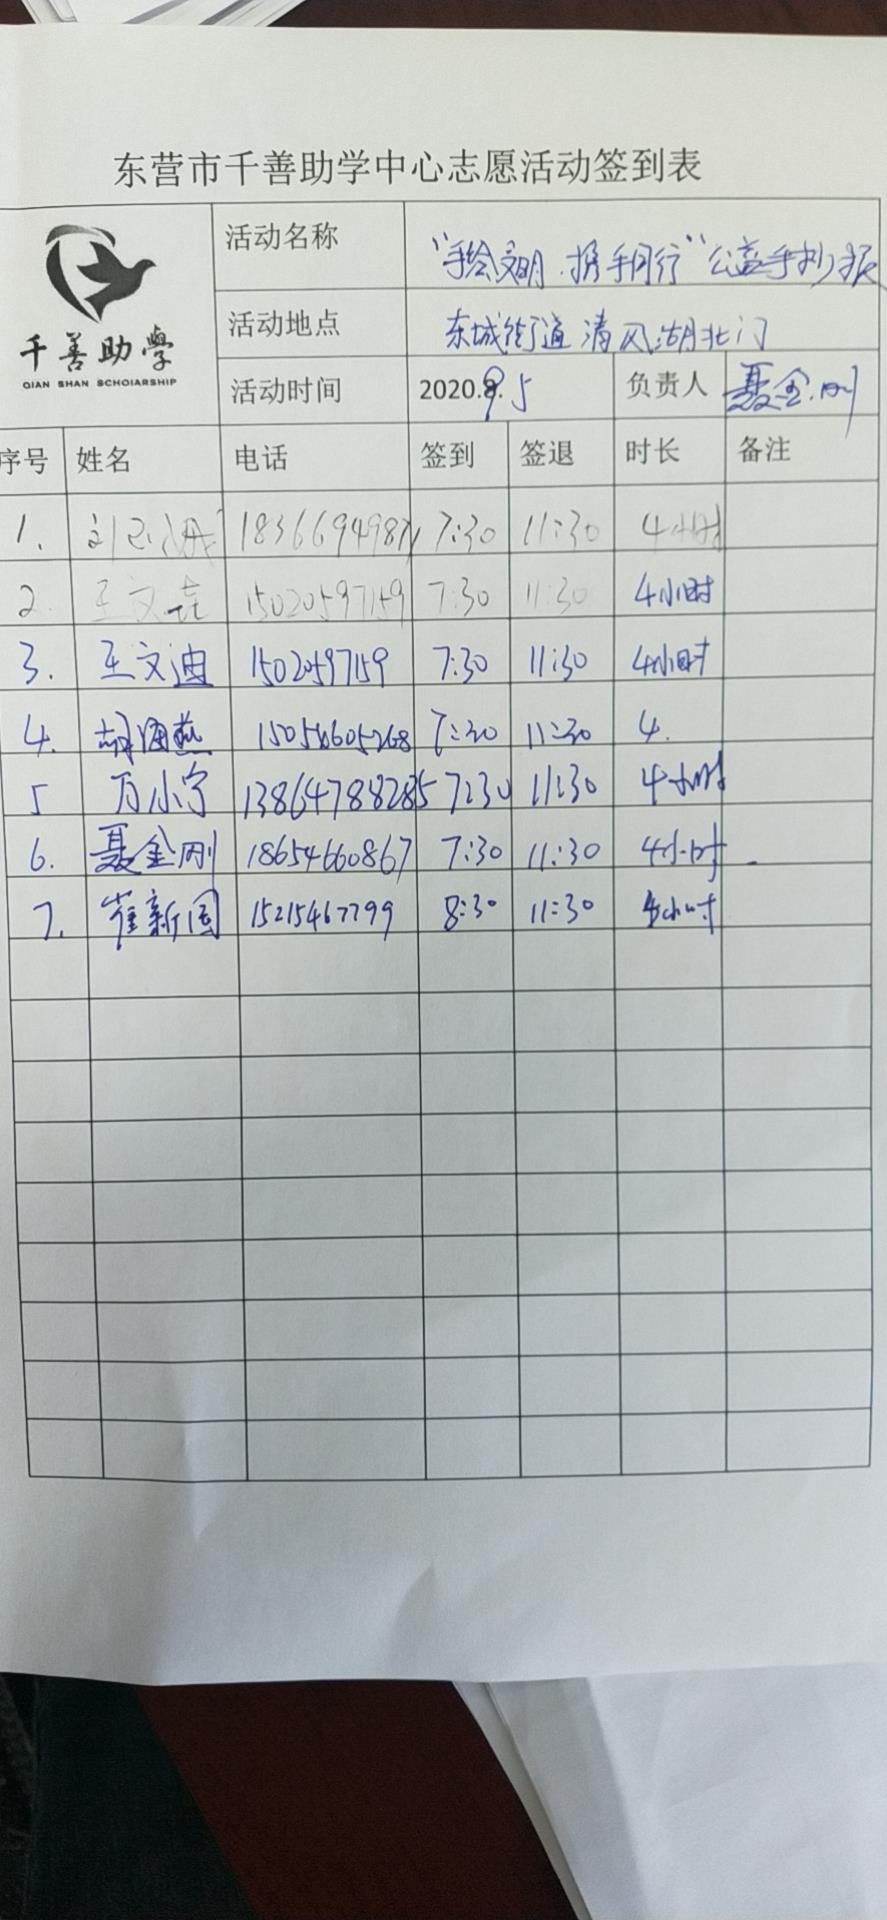 东营市千善助学中心志愿活动签到表
千善助學
QIAN SHAN SCHOIARSHIP
活动名称 "手绘文明.携手同行"公益手抄报
活动地点 东城街道清风湖北门
活动时间 2020.9.5 负责人 聂金刚
序号 姓名 电话 签到 签退 时长 备注
1. 7:30 11:30 4小时
2. 王文 15020597159 7:30 11:30 4小时
3. 王文迪 15020597159 7:30 11:30 4小时
4. 胡海燕 7:30 11:30 4.
5 万小宁 13864788285 7:30 11:30 4小时
6. 聂金刚 18654660867 7:30 11:30 4小时
7. 崔新国 15215467799 8:30 11:30 小时